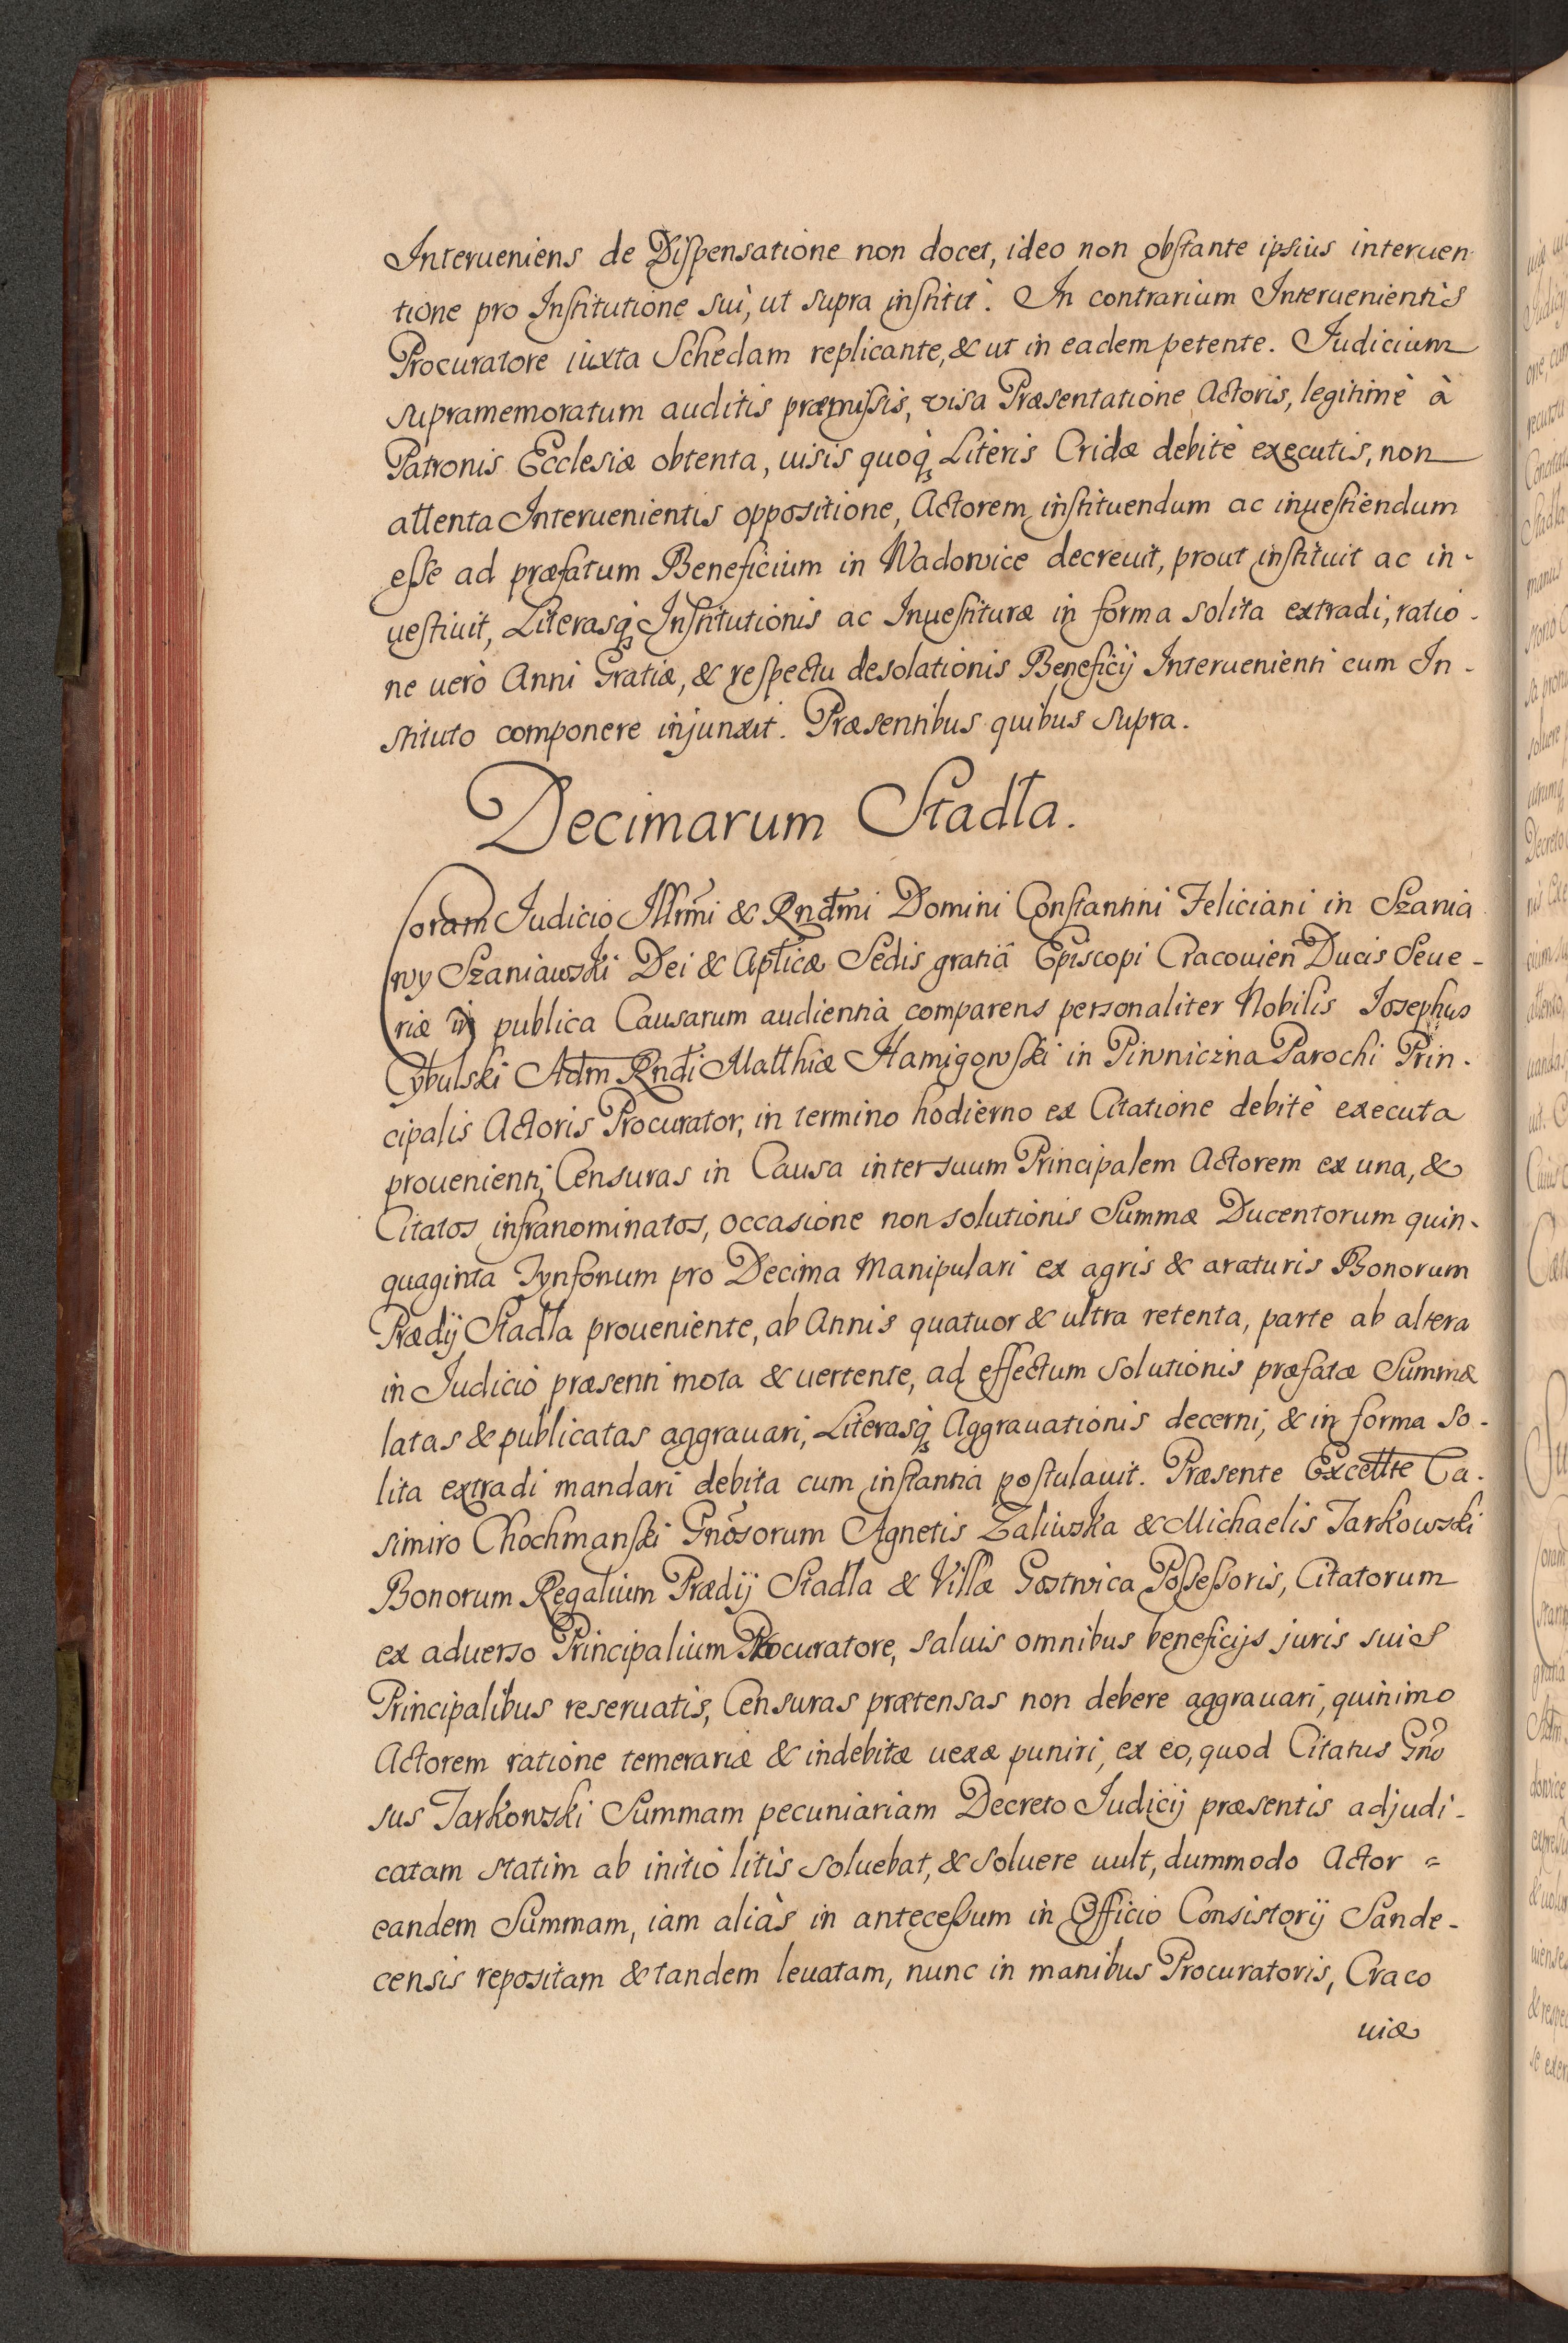 Interueniens de Dispensatione non docet, ideo non obstante ipsius interuen
tione pro Institutione sui, ut supra institit. In contrarium Interuenientis
Procuratore iuxta Schedam replicante, & ut in eadem petente. Judicium
supramemoratum auditis præmissis, visa Præsentatione Actoris, legitimè à
Patronis Ecclesiæ obtenta, uisis quoq; Literis Cridæ debitè executis, non
attenta Interuenientis oppositione, Actorem instituendum ac inuestiendum
esse ad præfatum Beneficium in Wadowice decreuit, prout instituit ac in-
uestiuit, Literasq; Institutionis ac Inuestituræ in forma solita extradi, ratio-
ne uerò Anni Gratiæ, & respectu desolationis Beneficij Interuenienti cum In-
stituto componere injunxit. Præsentibus quibus supra.
Decimarum Stadła.
Coram Judicio Illrmi & Rndmi Domini Constantini Feliciani in Szania
wy Szaniawski Dei & Aplicæ Sedis gratiâ Episcopi Cracouien Ducis Seue-
riæ in publica Causarum audientia comparens personaliter Nobilis Josephus
Cybulski Adm Rndi Matthiæ Hamigowski in Piwniczna Parochi Prin-
cipalis Actoris Procurator, in termino hodierno ex Citatione debitè executa
prouenienti, Censuras in Causa inter suum Principalem Actorem ex una, &
Citatos infranominatos, occasione non solutionis Summæ Ducentorum quin-
quaginta Tynfonum pro Decima Manipulari ex agris & araturis Bonorum
Prædij Stadła proueniente, ab Annis quatuor & ultra retenta, parte ab altera
in Judicio præsenti mota & uertente, ad effectum solutionis præfatæ Summæ
latas & publicatas aggrauari, Literasq; Aggrauationis decerni, & in forma so-
lita extradi mandari debita cum instantia postulauit. Præsente Excellte Ca-
simiro Chochmanski Gnosorum Agnetis Zaliwska & Michaelis Jarkowski
Bonorum Regalium Prædij Stadła & Villæ Gostwica Possessoris, Citatorum
ex aduerso Principalium Procuratore, saluis omnibus beneficijs juris suis
Principalibus reseruatis, Censuras prætensas non debere aggrauari, quinimo
Actorem ratione temerariæ & indebitæ uexæ puniri, ex eo, quod Citatus Gno
sus Jarkowski Summam pecuniariam Decreto Judicij præsentis adjudi-
catam statim ab initio litis soluebat, & soluere uult, dummodo Actor =
eandem Summam, iam aliàs in antecessum in Officio Consistorij Sande-
censis repositam & tandem leuatam, nunc in manibus Procuratoris, Craco
uiæ